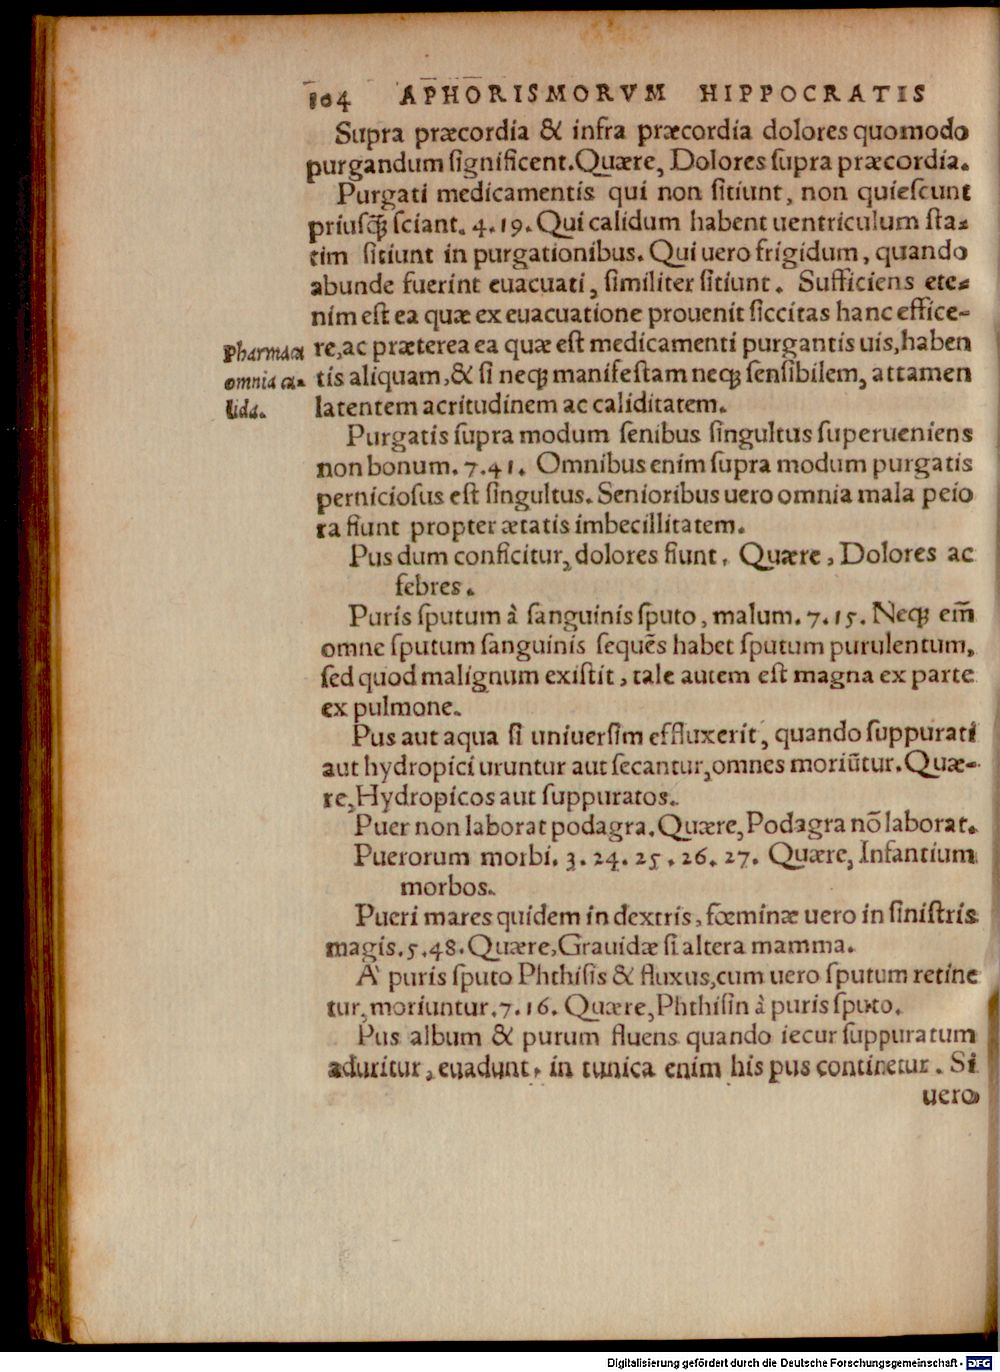 104 APHORISMORVM HIPPOCRATIS
Supra præcordia & infra præcordia dolores quomodo
purgandum significent. Quære, Dolores supra præcordia.
Purgati medicamentis qui non sitiunt, non quiescunt
priusq̃ sciant. 4. 19. Qui calidum habent uentriculum sta-
tim sitiunt in purgationibus. Qui uero frigidum, quando
abunde fuerint euacuati, similiter sitiunt. Sufficiens ete-
nim est ea quæ ex euacuatione prouenit siccitas hanc effice-
re, ac præterea ea quæ est medicamenti purgantis uis, haben
tis aliquam, & si neq; manifestam neq; sensibilem, attamen
latentem acritudinem ac caliditatem.
Pharmaca
omnia ca-
lida.
Purgatis supra modum senibus singultus superueniens
non bonum. 7. 41. Omnibus enim supra modum purgatis
perniciosus est singultus. Senioribus uero omnia mala peio
ra fiunt propter ætatis imbecillitatem.
Pus dum conficitur, dolores fiunt. Quære, Dolores ac
febres.
Puris sputum à sanguinis sputo, malum. 7. 15. Neq; em̃
omne sputum sanguinis sequẽs habet sputum purulentum,
sed quod malignum existit, tale autem est magna ex parte
ex pulmone.
Pus aut aqua si uniuersim effluxerit, quando suppurati
aut hydropici uruntur aut secantur, omnes moriũtur. Quæ-
re, Hydropicos aut suppuratos.
Puer non laborat podagra. Quære, Podagra nõ laborat.
Puerorum morbi. 3. 24. 25. 26. 27. Quære, Infantium
morbos.
Pueri mares quidem in dextris, fœminæ uero in sinistris
magis. 5. 48. Quære, Grauidæ si altera mamma.
A' puris sputo Phthisis & fluxus, cum uero sputum retine
tur, moriuntur. 7. 16. Quære, Phthisin à puris sputo.
Pus album & purum fluens quando iecur suppuratum
aduritur, euadunt, in tunica enim his pus continetur. Si
uero
Digitalisierung gefördert durch die Deutsche Forschungsgemeinschaft - DFG